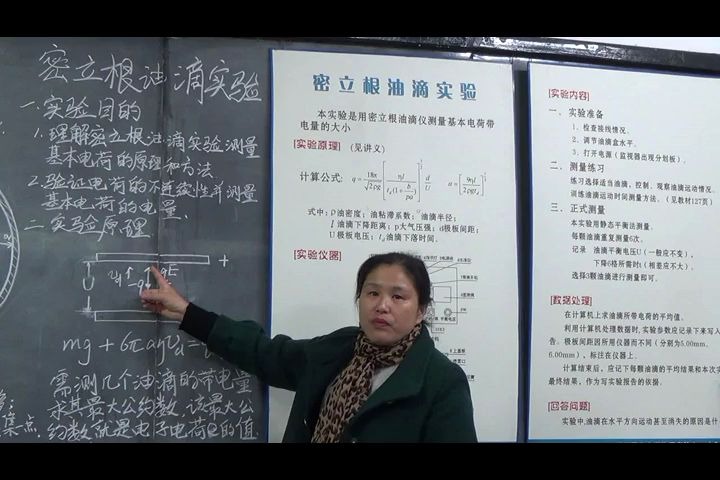 密立根油滴实验
一.实验目的
1.理解密立根油滴实验测量
基本电荷的原理和方法
2.验证电荷的不连续性并测量
基本电荷的电量.
二.实验原理
+
U
qE
需测几个油滴的带电量
求其最大公约数,该最大公
约数就是电子电荷e的值.
集点.
密立根油滴实验
本实验是用密立根油滴仪测量基本电荷带
电量的大小
[实验原理] (见讲义)
计算公式:
式中:ρ油密度; 油粘滞系数; 油滴半径;
l 油滴下降距离; p大气压强; d极板间距;
U极板电压; 油滴下落时间.
[实验仪器]
[实验内容]
一. 实验准备
1、检查接线情况。
2、调节油滴盒水平.
3、打开电源(监视器出现分划板).
二. 测量练习
练习选择适当油滴、控制、观察油滴运动情况.
训练油滴运动时间测量方法.(见教材127页)
三. 正式测量
本实验用静态平衡法测量.
每颗油滴重复测量6次.
记录 油滴平衡电压U(一般应不变),
下降6格所需时t(相差应不大).
选择3颗油滴进行测量即可.
[数据处理]
在计算机上求油滴所带电荷的平均值.
利用计算机处理数据时,实验参数应记录下来写入
告. 极板间距因所用仪器而不同(分别为5.00mm,
6.00mm),标注在仪器上.
计算结束后,应记下每颗油滴的平均结果和本次实
最终结果,作为写实验报告的依据.
[回答问题]
实验中,油滴在水平方向运动甚至消失的原因是什